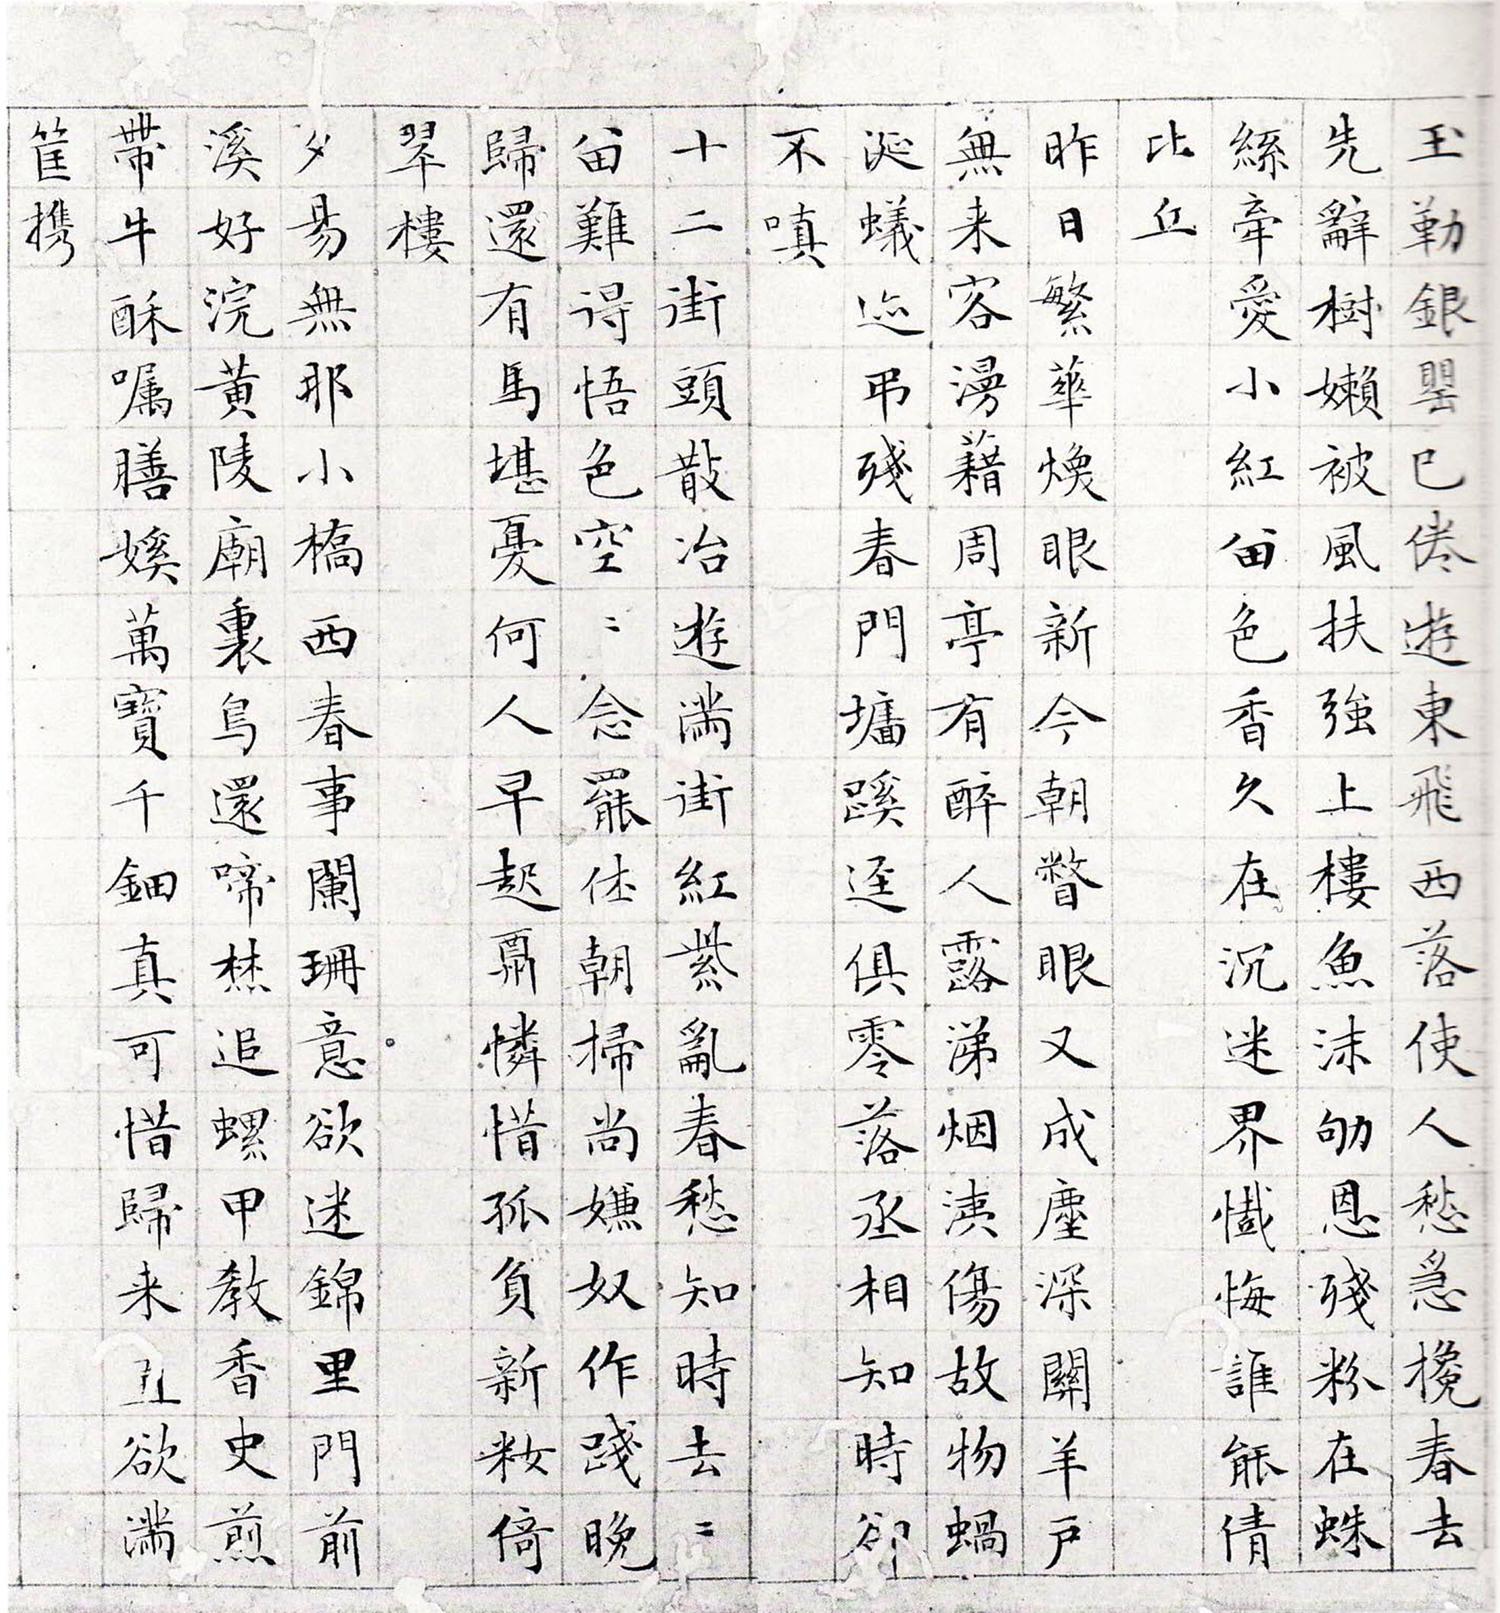 玉勒銀罌已倦遊東飛西落使人愁急攙春去
先辭樹嬾被風扶強上樓魚沫劬恩殘粉在蛛
絲牽愛小紅畱色香久在沉迷界懺悔誰能倩
比丘
昨日繁華煥眼新今朝瞥眼又成塵深關羊戶
無来客漫藉周亭有醉人露涕烟洟傷故物蝸
涎蟻迹弔殘春門墻蹊逕俱零落丞相知時卻
不嗔
十二街頭散冶遊滿街紅紫亂春愁知時去〻
畱難得悟色空〻念罷休朝掃尚嫌奴作踐晚
歸還有馬堪憂何人早起肎憐惜孤負新粧倚
翠樓
夕昜無那小橋西春事闌珊意欲迷錦里門前
溪好浣黃陵廟裏鳥還啼焚追螺甲教香史煎
帶牛酥嘱膳媐萬寶千鈿真可惜歸来直欲滿
筐携